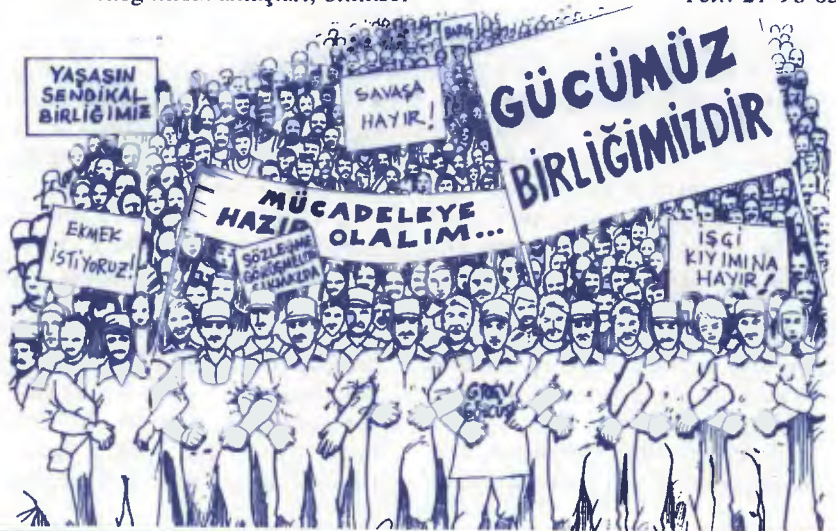 YAŞASIN
SENDİKAL
BİRLİĞİMİZ
SAVAŞA
HAYIR!
GÜCÜMÜZ
BİRLİĞİMİZDİR
MÜCADELEYE
HAZIR OLALIM...
EKMEK
İSTİYORUZ!
SÖZLEŞME
İŞÇİ
KIYIMINA
HAYIR!
GREV